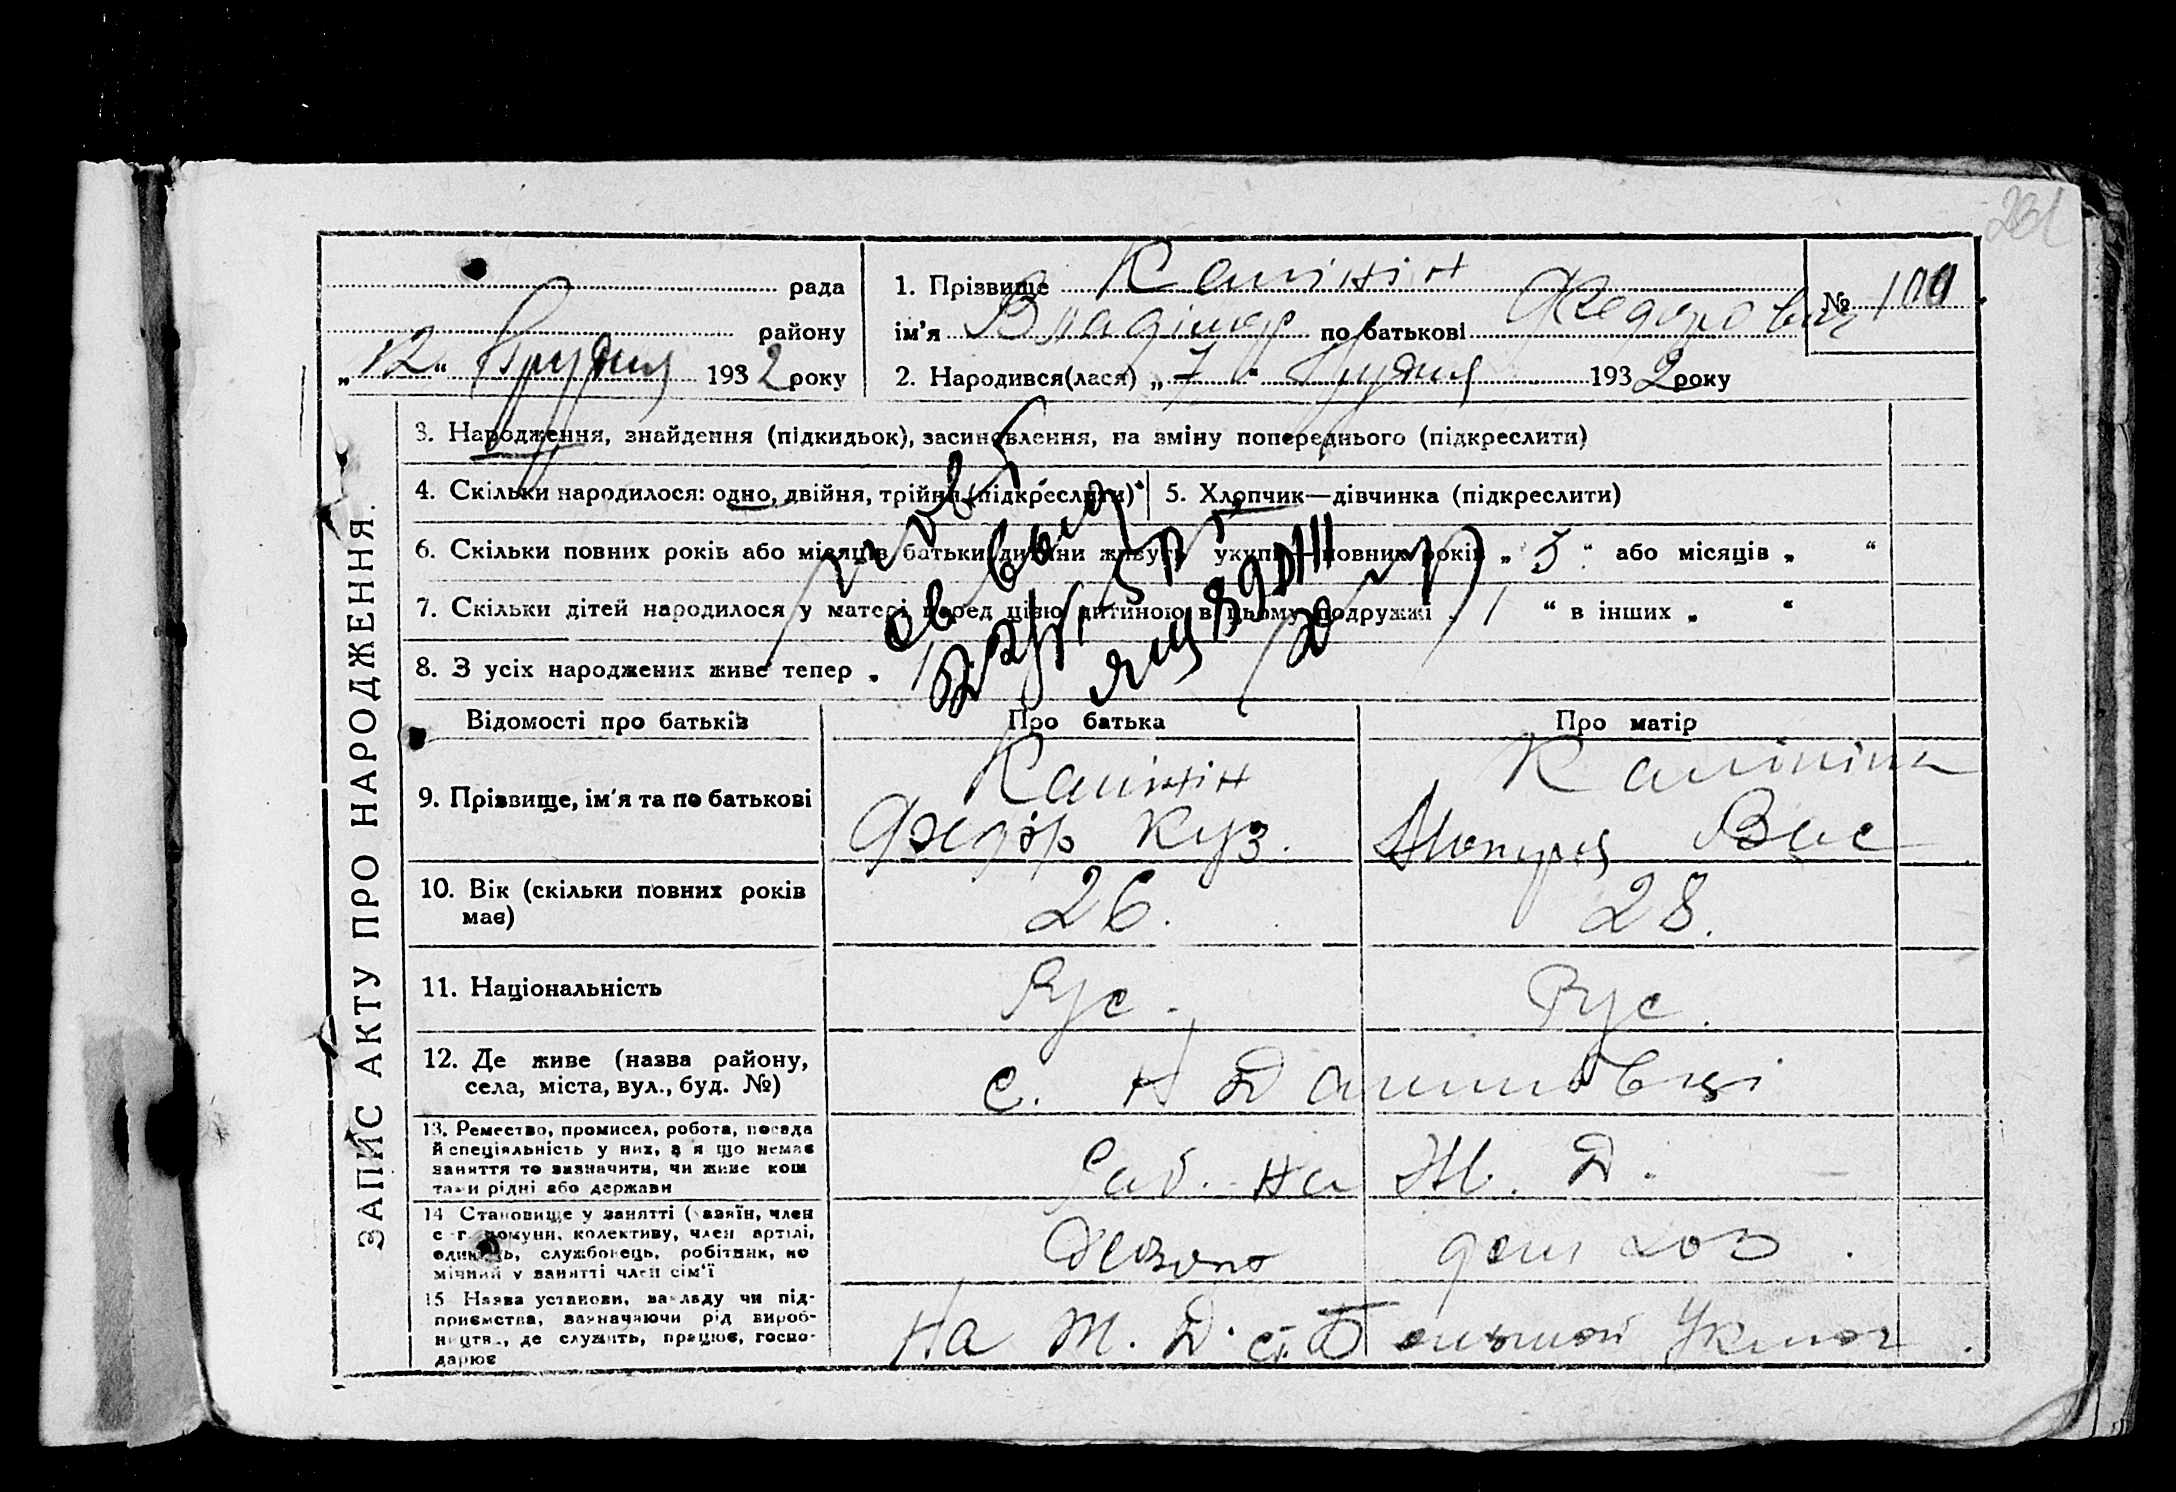 231
рада
1. Прізвище Калінін
№ 100
району
ім'я Владімір по батькові Федорович
„12“ Грудня 1932 року
2. Народився(лася) „7“ Грудня 1932 року
ЗАПИС АКТУ ПРО НАРОДЖЕННЯ.
3. Народження, знайдення (підкидьок), засиновлення, на зміну попереднього (підкреслити)
4. Скільки народилося: одно, двійня, трійня (підкреслити)
5. Хлопчик—дівчинка (підкреслити)
6. Скільки повних років або місяців батьки дитини живуть укупі: повних років „5“ або місяців „ “
7. Скільки дітей народилося у матері перед цією дитиною в цьому подружжі „1“ в інших „ “
8. З усіх народжених живе тепер „1
Відомості про батьків
Про батька
Про матір
9. Прізвище, ім'я та по батькові
Калінін
Федор Куз.
Калініна
Вас
10. Вік (скільки повних років
має)
26.
28.
11. Національність
Рус.
Рус.
12. Де живе (назва району,
села, міста, вул., буд. №)
с. Н Даниловці
13. Ремество, промисел, робота, посада
й спеціяльність у них, а я що немає
заняття то визначити, чи живе кош
тами рідні або держави
Раб. на Ж. Д.
14 Становище у занятті (хазяїн, член
с-г. комуни, колективу, член артілі,
одинець, службовець, робітник, по
мічний у занятті член сім'ї
дом хоз.
15 Назва установи, закладу чи під-
приємства, зазначаючи рід вироб-
ництва, де служить, працює, госпо-
дарює
На Ж. Д. ст.